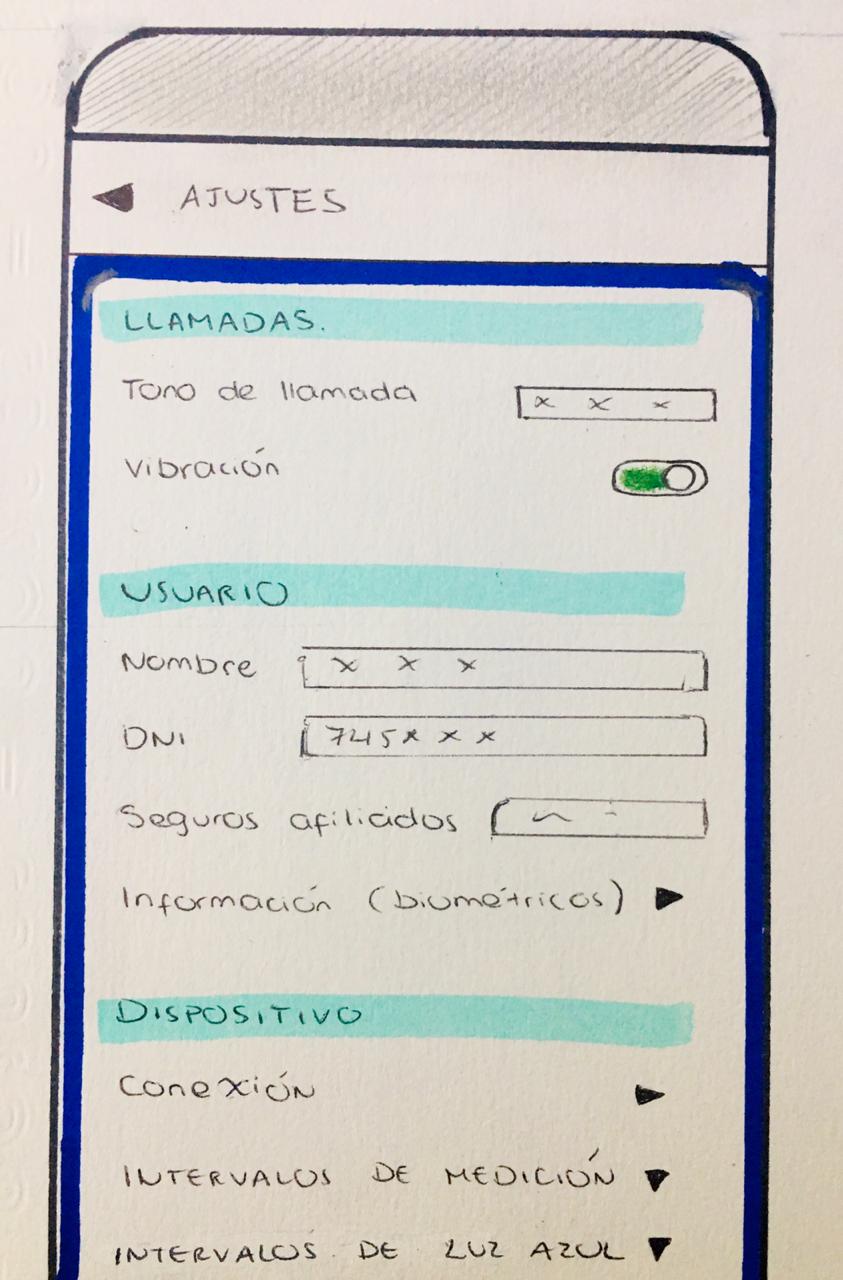 AJUSTES
LLAMADAS.
Tono de llamada x x x
Vibración
USUARIO
Nombre x x x
DNI 745x x x
Seguros afiliados
Información (biométricos)
DISPOSITIVO
Conexión
INTERVALOS DE MEDICIÓN
INTERVALOS DE LUZ AZUL